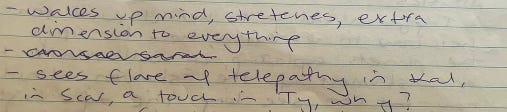 - wakes up mind, stretches, extra
dimension to everything
- sees flare of telepathy in Kal,
in Scar, a touch in Ty, why?